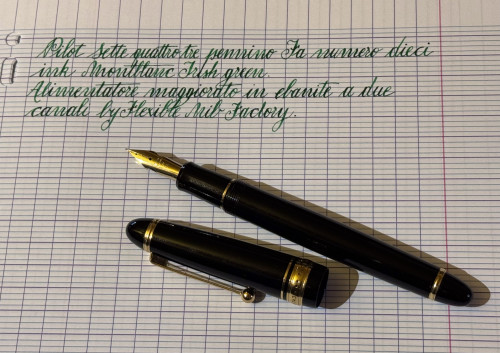 Pilot sette quattro tre pennino Fa numero dieci
ink Montblanc Irish green.
Alimentatore maggiorato in ebanite a due
canali by Flexible Nib Factory.